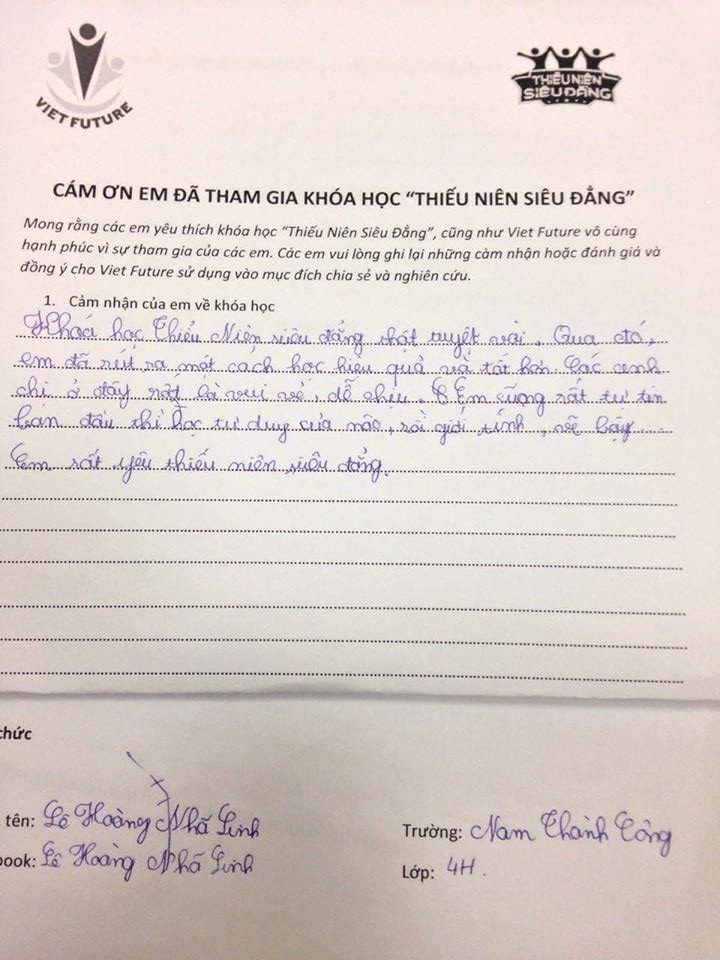 VIET FUTURE
THIẾU NIÊN
SIÊU ĐẲNG
CÁM ƠN EM ĐÃ THAM GIA KHÓA HỌC “THIẾU NIÊN SIÊU ĐẲNG”
Mong rằng các em yêu thích khóa học “Thiếu Niên Siêu Đẳng”, cũng như Viet Future vô cùng
hạnh phúc vì sự tham gia của các em. Các em vui lòng ghi lại những cảm nhận hoặc đánh giá và
đồng ý cho Viet Future sử dụng vào mục đích chia sẻ và nghiên cứu.
1. Cảm nhận của em về khóa học
Khoá học Thiếu Niên siêu đẳng thật tuyệt vời. Qua đó,
em đã rút ra một cách học hiệu quả và tốt hơn. Các anh
chị ở đây rất là vui vẻ, dễ chịu. Em cũng rất tự tin
ban đầu thì học tư duy của não, rồi giới tính, vẽ bậy...
Em rất yêu thiếu niên siêu đẳng.
chức
tên: Lê Hoàng Nhã Linh
Trường: Nam Thành Công
book: Lê Hoàng Nhã Linh
Lớp: 4H.